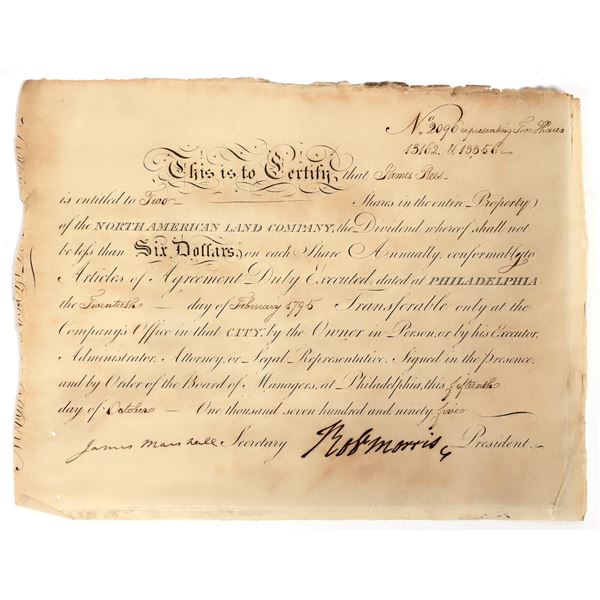 No. 2096 representing Two Shares
13162. & 13356
This is to Certify, that James Rees
is entitled to Two Shares in the entire Property
of the NORTH AMERICAN LAND COMPANY, the Dividend whereof shall not
be less than Six Dollars, on each Share Annually, conformably to
Articles of Agreement Duly Executed, dated at PHILADELPHIA
the Twentieth day of February 1795 Transferable only at the
Company's Office in that CITY, by the Owner in Person, or by his Executor,
Administrator, Attorney, or Legal Representative. Signed in the presence,
and by Order of the Board of Managers, at Philadelphia, this fifteenth
day of October One thousand seven hundred and ninety five
James Marshall Secretary Robt Morris, President.